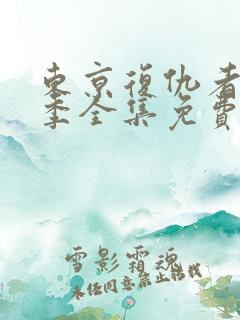 东京復仇者
季全集免費
雪影霜魂
未经同意禁止转载